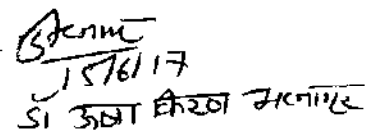 15/6/17
डॉ ऊषा किरण भटनागर